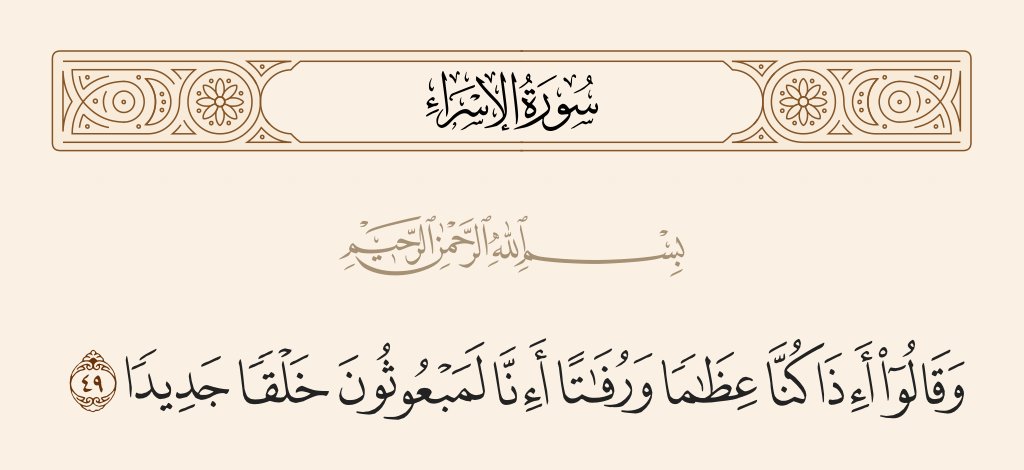 سُورَةُ الإِسْرَاءِ
بِسْمِ ٱللَّهِ ٱلرَّحْمَٰنِ ٱلرَّحِيمِ
وَقَالُوٓا۟ أَءِذَا كُنَّا عِظَٰمًا وَرُفَٰتًا أَءِنَّا لَمَبْعُوثُونَ خَلْقًا جَدِيدًا ٤٩